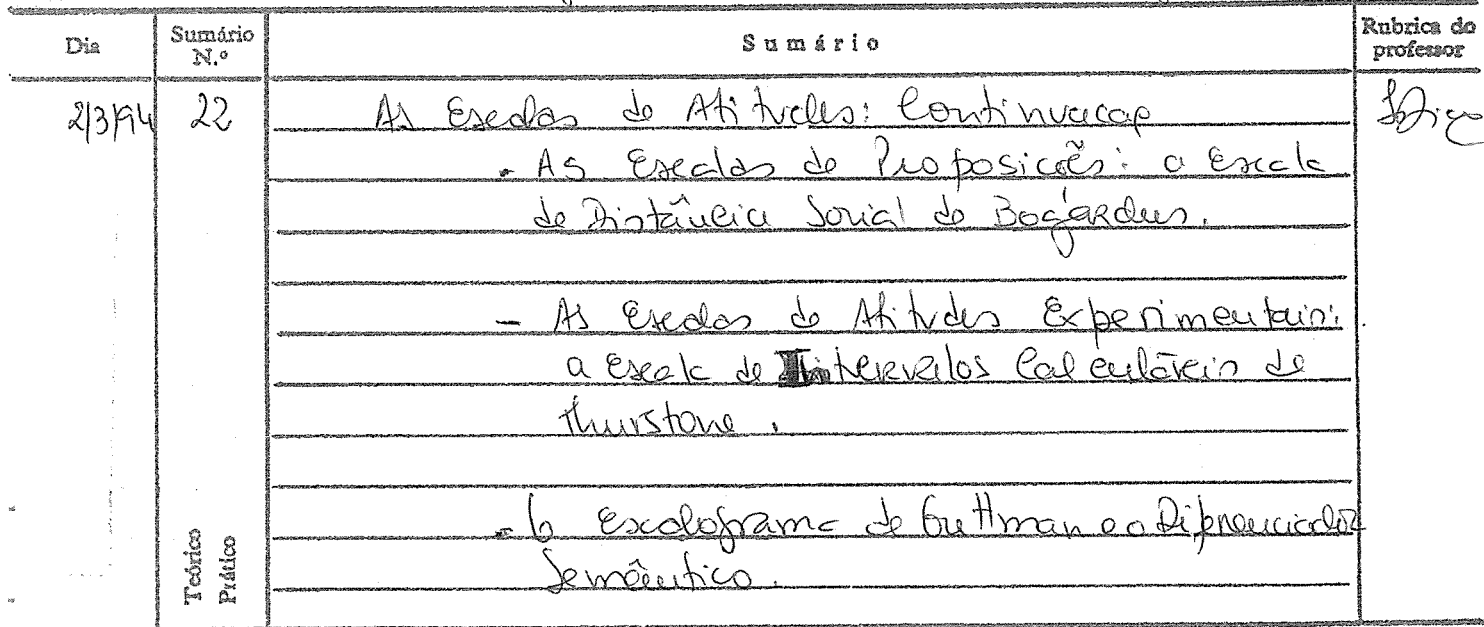 Dia
Sumário N.º
Sumário
Rubrica do professor
2/3/94
22
As Escalas de Atitudes: Continuação
- As Escalas de Proposições: a Escala
de Distância Social de Bogardus.
- As Escalas de Atitudes Experimentais:
a Escala de Intervalos Calculáveis de
Thurstone.
- O Escalograma de Guttman e o Diferenciador
Semântico.
Teórico
Prático